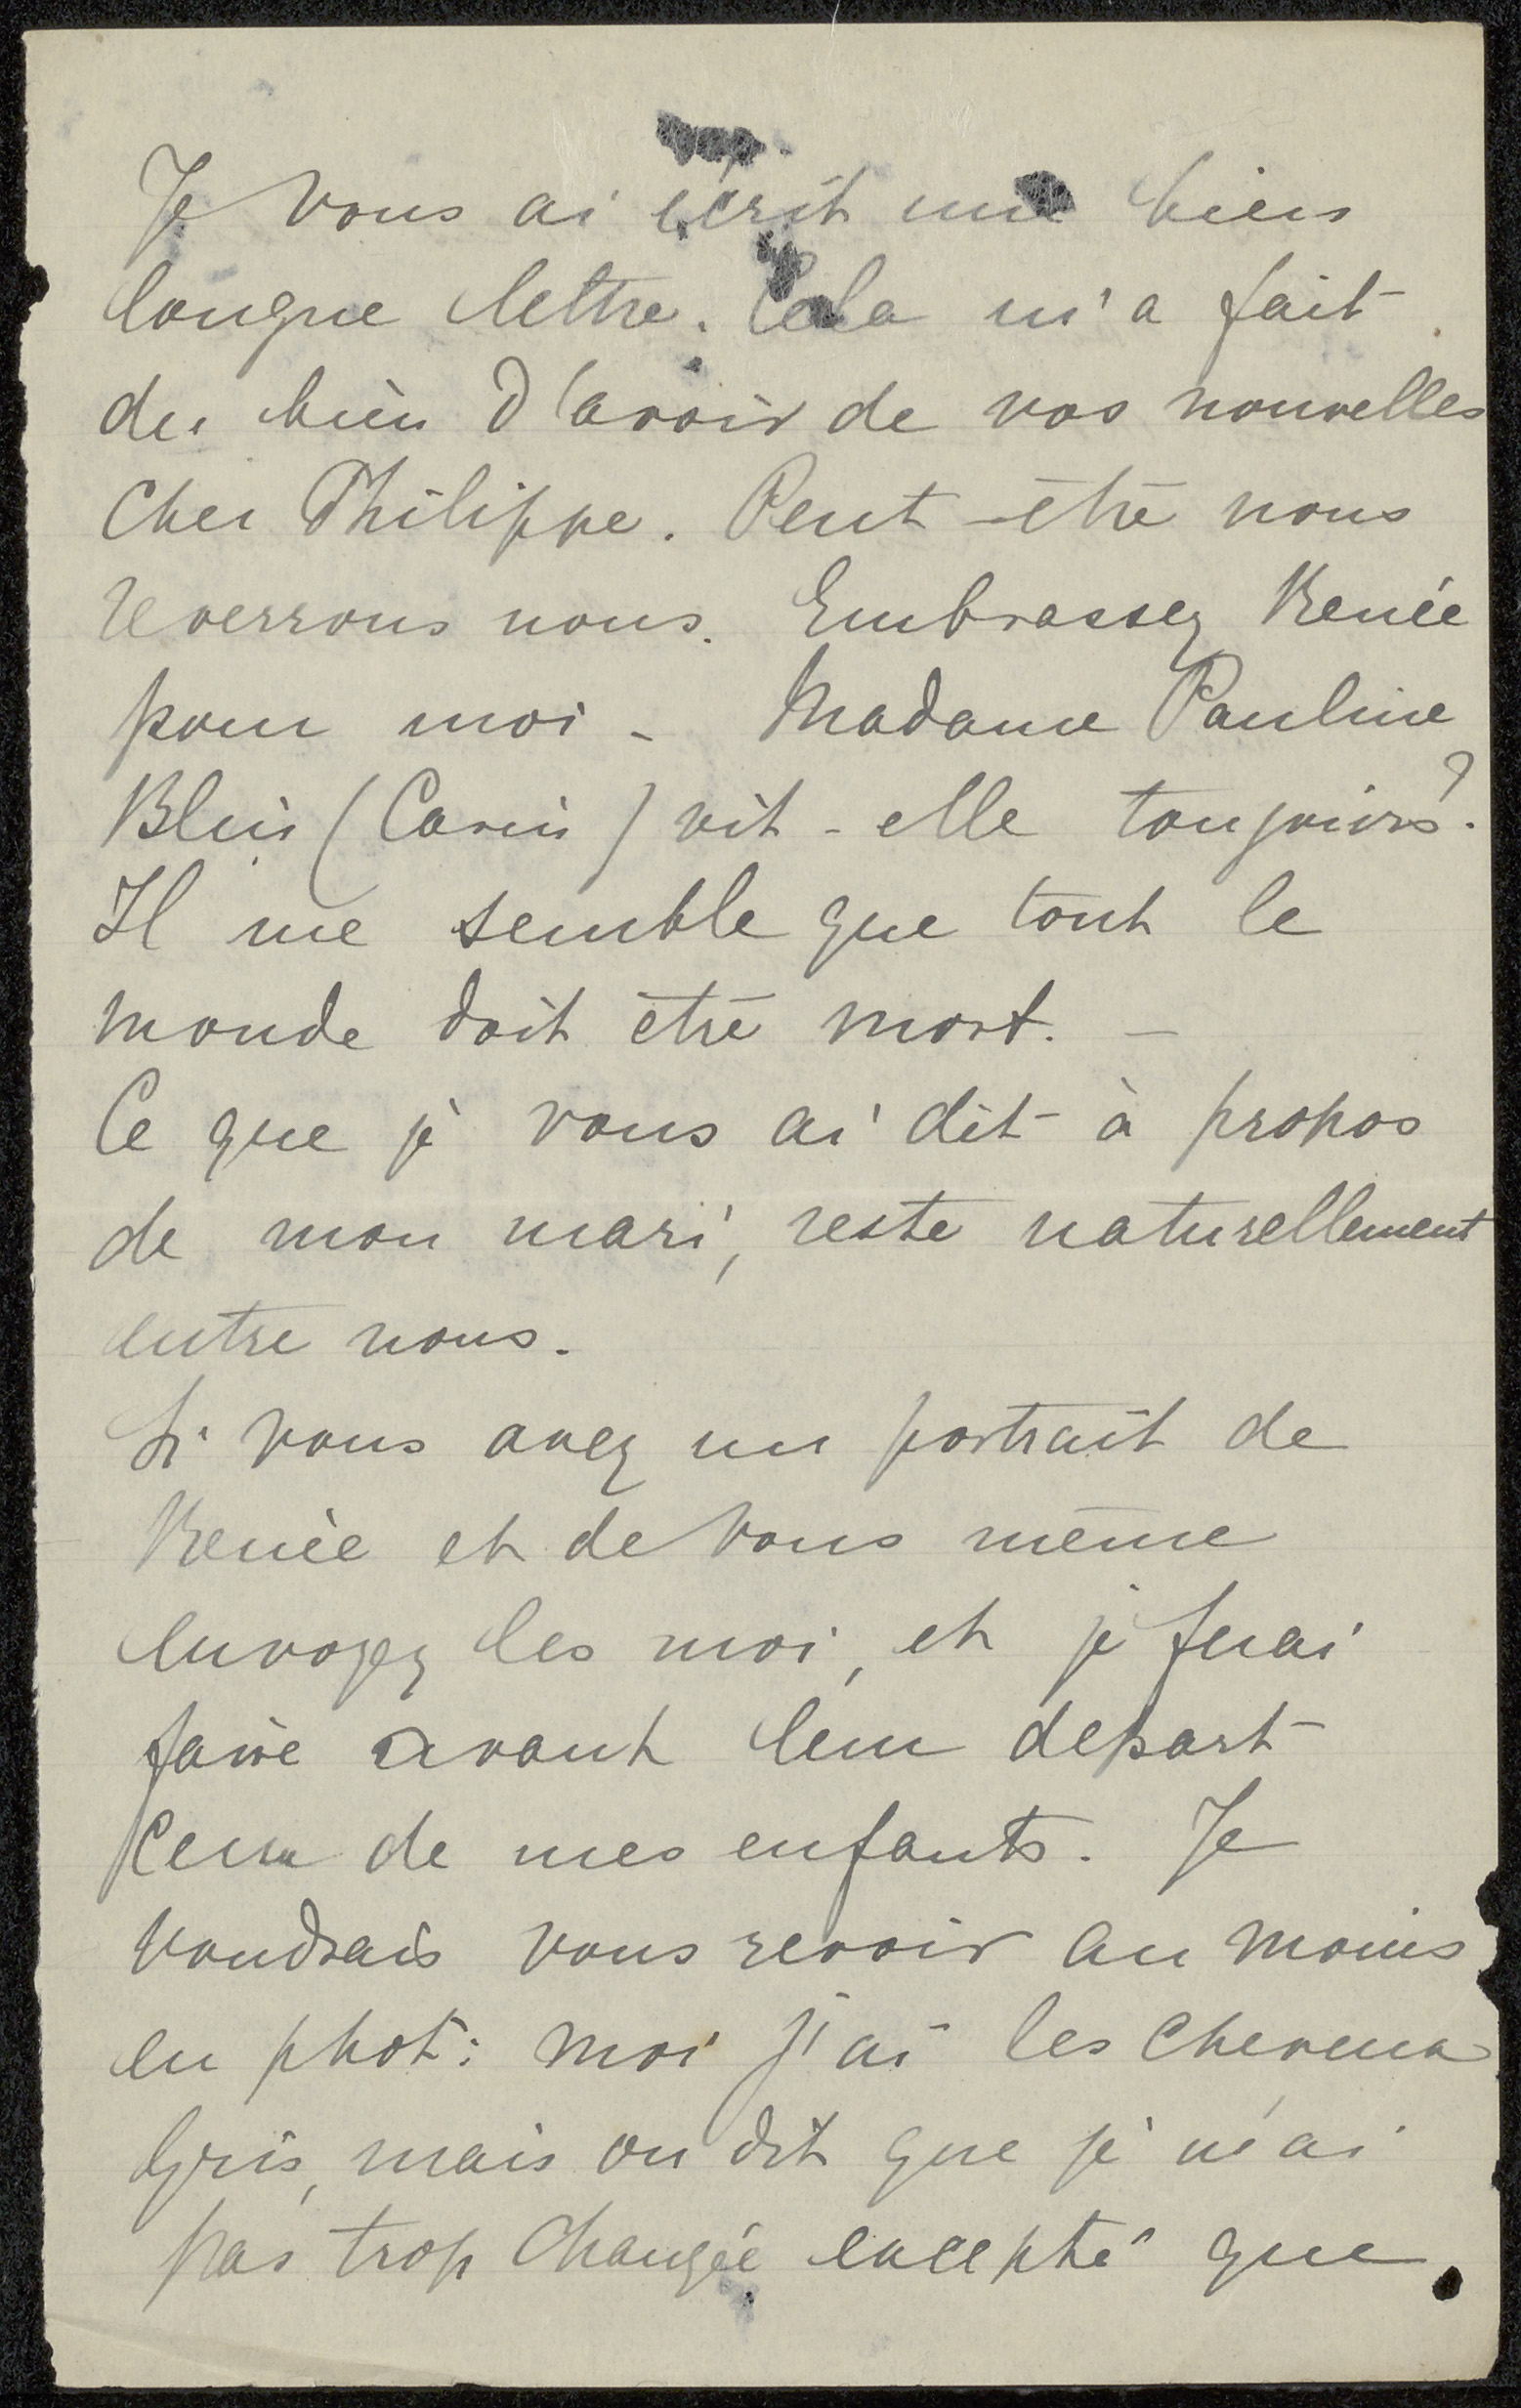 Je vous ai écrit une bien
longue lettre. Cela m'a fait
du bien d'avoir de vos nouvelles
Cher Philippe. Peut-être nous
reverrons nous. Embrassez Renée
pour moi - Madame Pauline
( ) vit-elle toujours?
Il me semble que tout le
monde doit être mort. -
Ce que je vous ai dit à propos
de mon mari, reste naturellement
entre nous.
Si vous avez un portrait de
Renée et de vous même
envoyez les moi, et je ferai
faire avant leur depart
ceux de mes enfants. Je
voudrais vous revoir au moins
en phot: moi j'ai les cheveux
gris, mais on dit que je n'ai
pas trop changée excepté que